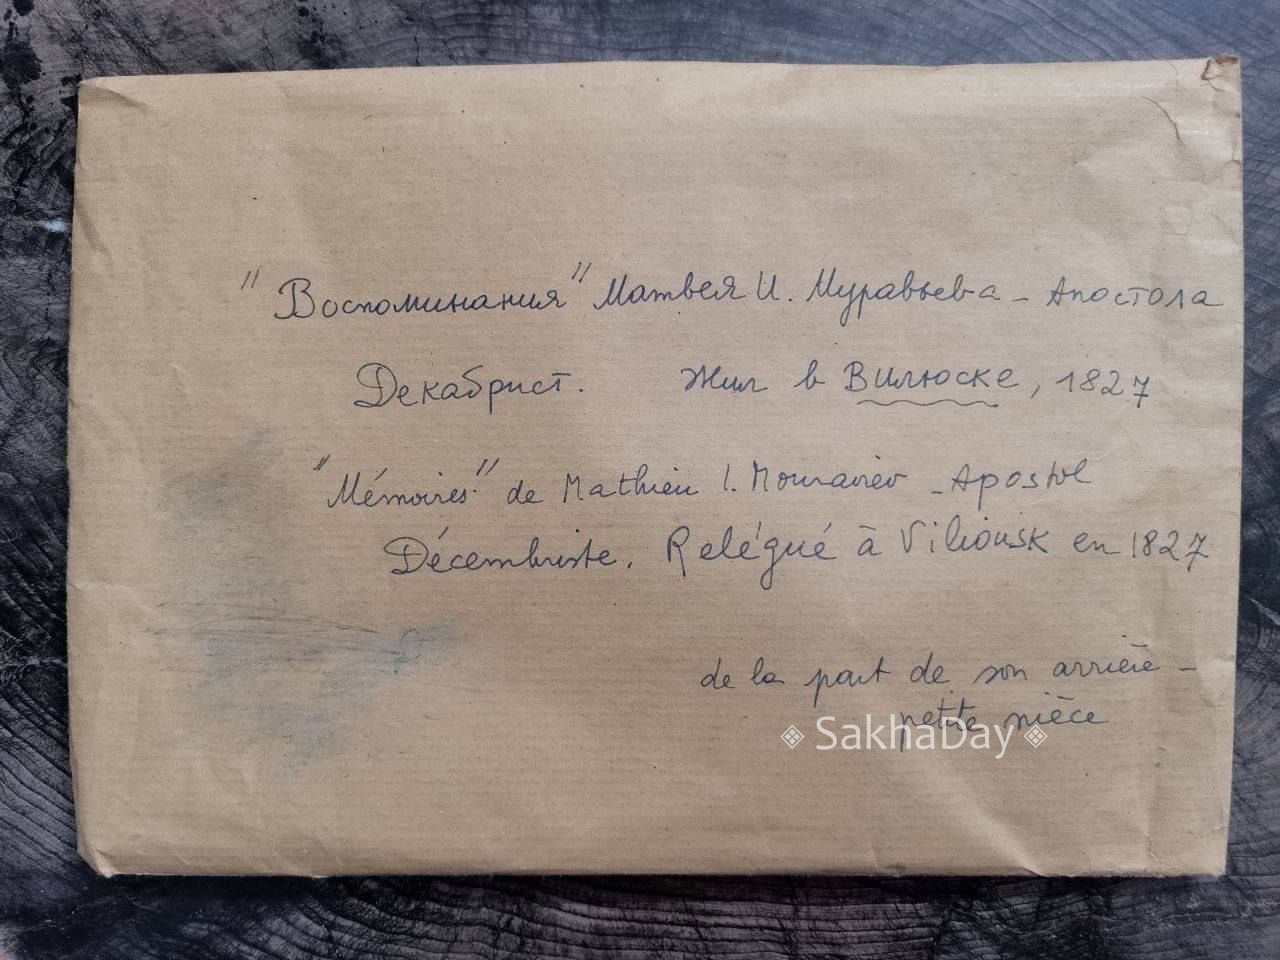 "Воспоминания" Матвея И. Муравьева - Апостола
Декабрист. Жил в Вилюске, 1827
"Mémoires" de Mathieu I. Mouraviev - Apostol
Décembriste. Relégué à Viliousk en 1827
de la part de son arrière -
petite nièce
SakhaDay